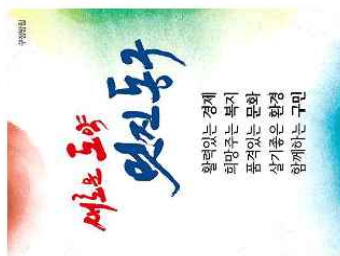 구정방침
새로운 도약
멋진 동구
활력있는 경제
희망주는 복지
품격있는 문화
살기좋은 환경
함께하는 구민